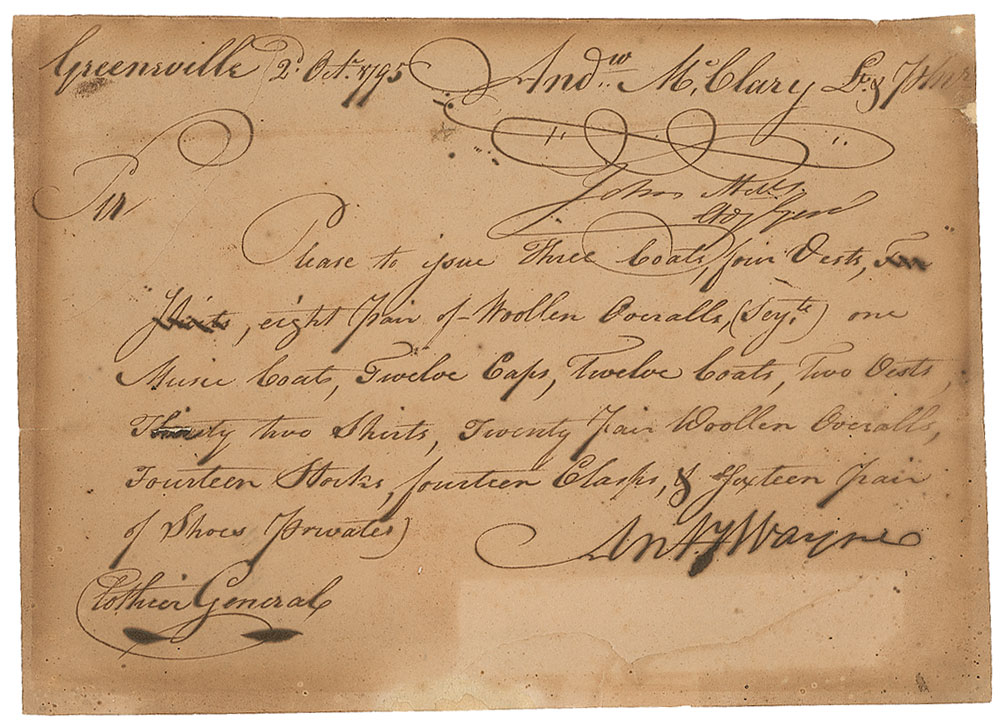 Greenville 2d. Octr. 1795 Andw. McClary Lt. &
Sir
John Mills
Adj Gen
Please to issue Three Coats, four Vests,
Shirts, eight Pair of Woollen Overalls, (Serjts.) one
Music Coat, Twelve Caps, Twelve Coats, Two Vests,
Thirty two Shirts, Twenty Pair Woollen Overalls,
Fourteen Stocks, fourteen Clasps, & Sixteen pair
of Shoes (privates)
Anty. Wayne
Clothier General